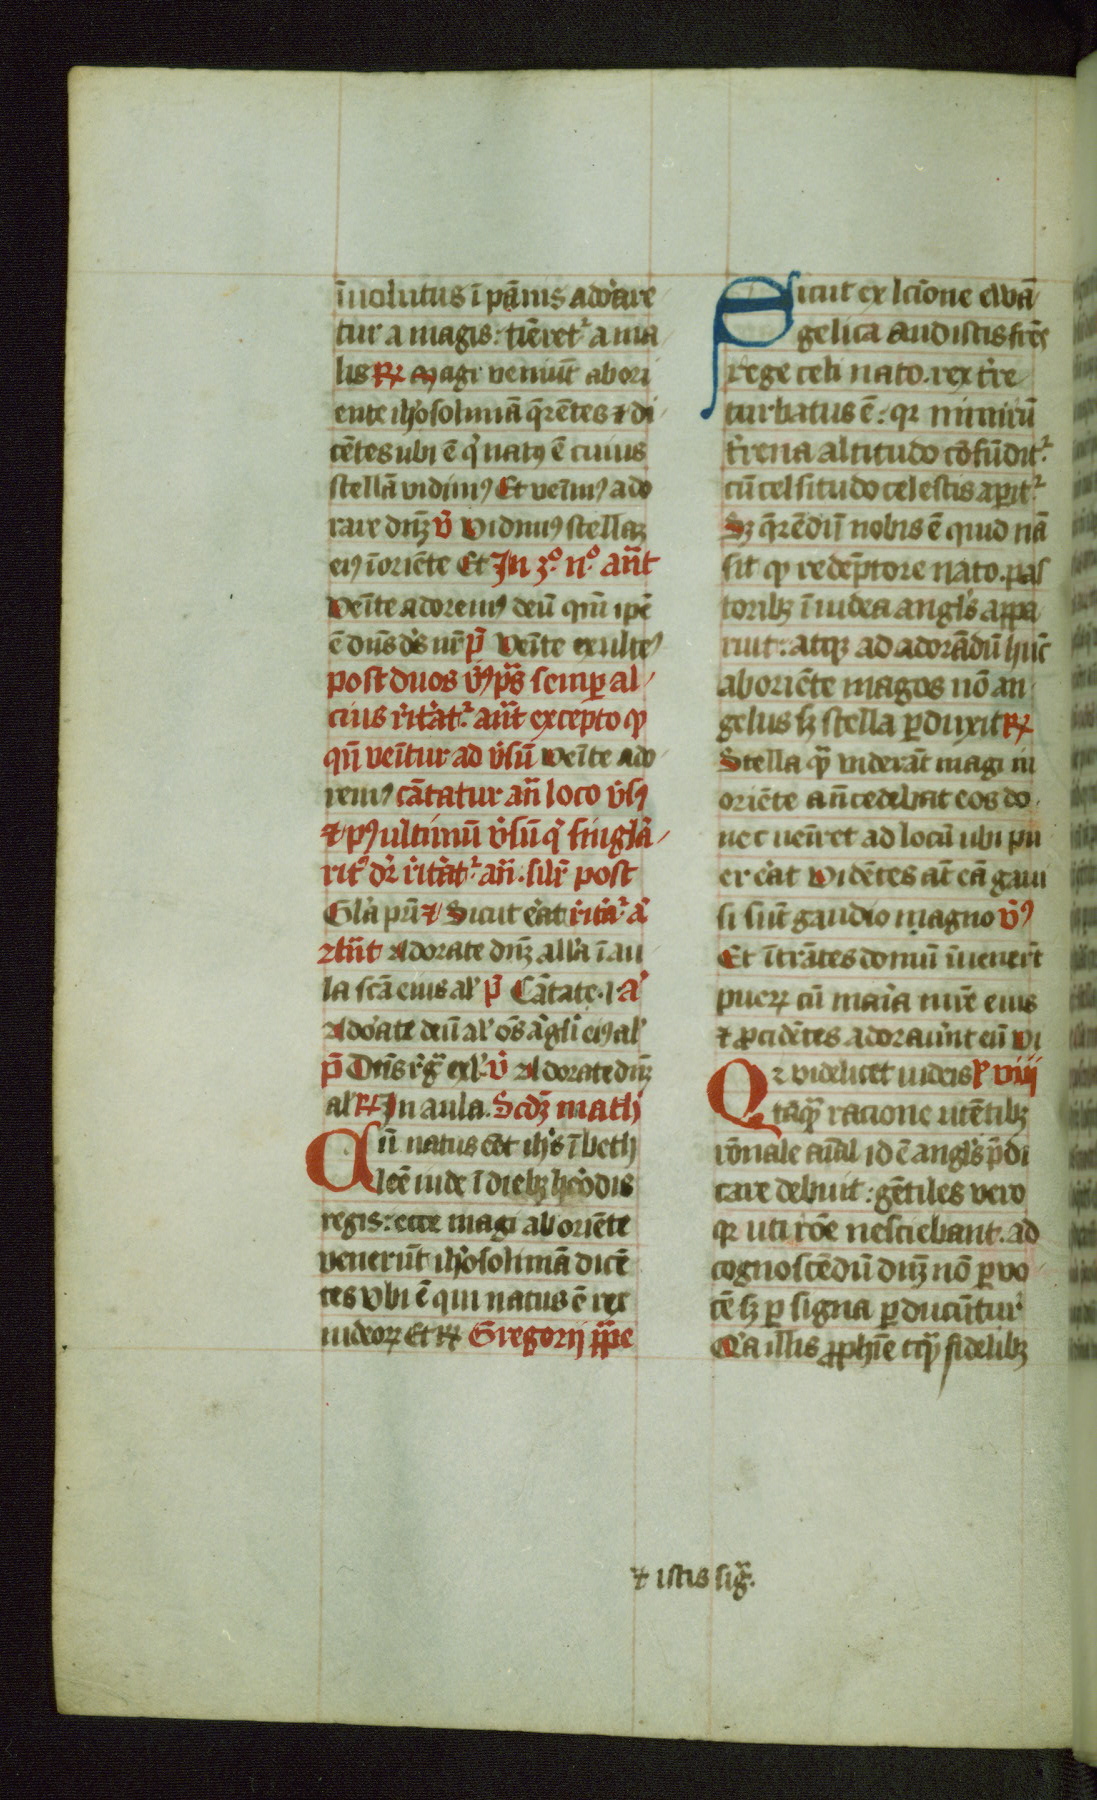 īuolutus ī pānis adorare
tur a magis: tīeret̾ a ma
lis R̷ Magi veniūt ab ori
ente ih'osolimā q̄rētes ⁊ di
cētes ubi ē q̇ natꝰ ē cuius
stellā vidimꝰ Et venimꝰ ado
rare dn̄ꝫ v̄ Vidimꝰ stellaꝫ
eiꝰ ī oriēte Et In 3o. n̊. an̄t
Venīte adoremꝰ deū qm̄ ip̄e
ē dn̄s ds̄ nr̄ p̄ Venīte exultemꝰ
post duos v̄sꝰ p̄s semꝑ al
cius ritat̾ an̄t excepto ꝙ
qn̄ venītur ad v̄sū Venīte ado
remꝰ cātatur an̄ loco v̄sꝰ
⁊ pꝰ ultimū v̄sū q̇ singla
rit̾ dr̄ ritat̾ an̄. silr̄ post
Gla pri ⁊ Sicut erat rita̾ a
Adorate dn̄ꝫ alla ī au
la sc̄a eius al' p̄ Cātate .i. a'
Adorate deū al' oēs angli eiꝰ al'
p̄ Dn̄s rḡ ex̄l. v̄ Adorate dn̄ꝫ
al' R̷ In aula. Scdꝫ math
Cū natus eēt ih's ī beth
leē iude ī diebꝫ herodis
regis: ecce magi ab oriēte
venerūt ih'osolimā dicē
tes Vbi ē qui natus ē rex
iudeoꝝ Et R̷ Gregorij p̄pe
Sicut ex lc̄ione ewā
gelica audistis fr̄es
rege celi nato. rex t̄re
turbatus ē: qꝛ nimirū
t̄rena altitudo cōfūdit̾
cū celsitudo celestis aꝑit̾
Sꝫ q̄rēdū nobis ē quid nā
sit ꝙ redēptore nato. pas
toribꝫ ī iudea angl's appa
ruit: atqꝫ ad adorādū hūc
ab oriēte magos nō an
gelus sꝫ stella ꝑduxit R̷
Stella quā viderāt magi in
oriēte an̄cedebat eos do
nec ueniret ad locū ubi pu
er erat Vidētes at̄ eā gaui
si sūt gaudio magno v̄ꝰ
Et ītrātes domū īuenerūt
pueꝝ cū maria mr̄e eius
⁊ ꝓcidētes adorauerūt eū Vi
Qꝛ videlicet iudeis P̄ viij
tāqꝫ racione utētibꝫ
rōnale aīal id ē angl's p̄di
care debuit: gētiles vero
qꝛ uti rōe nesciebant. ad
cognoscēdū dn̄ꝫ nō ꝑ vo
cē sꝫ ꝑ signa ꝑducūtur
Qia illis ꝓphīe tāqꝫ fidelibꝫ
⁊ istis sig̃.